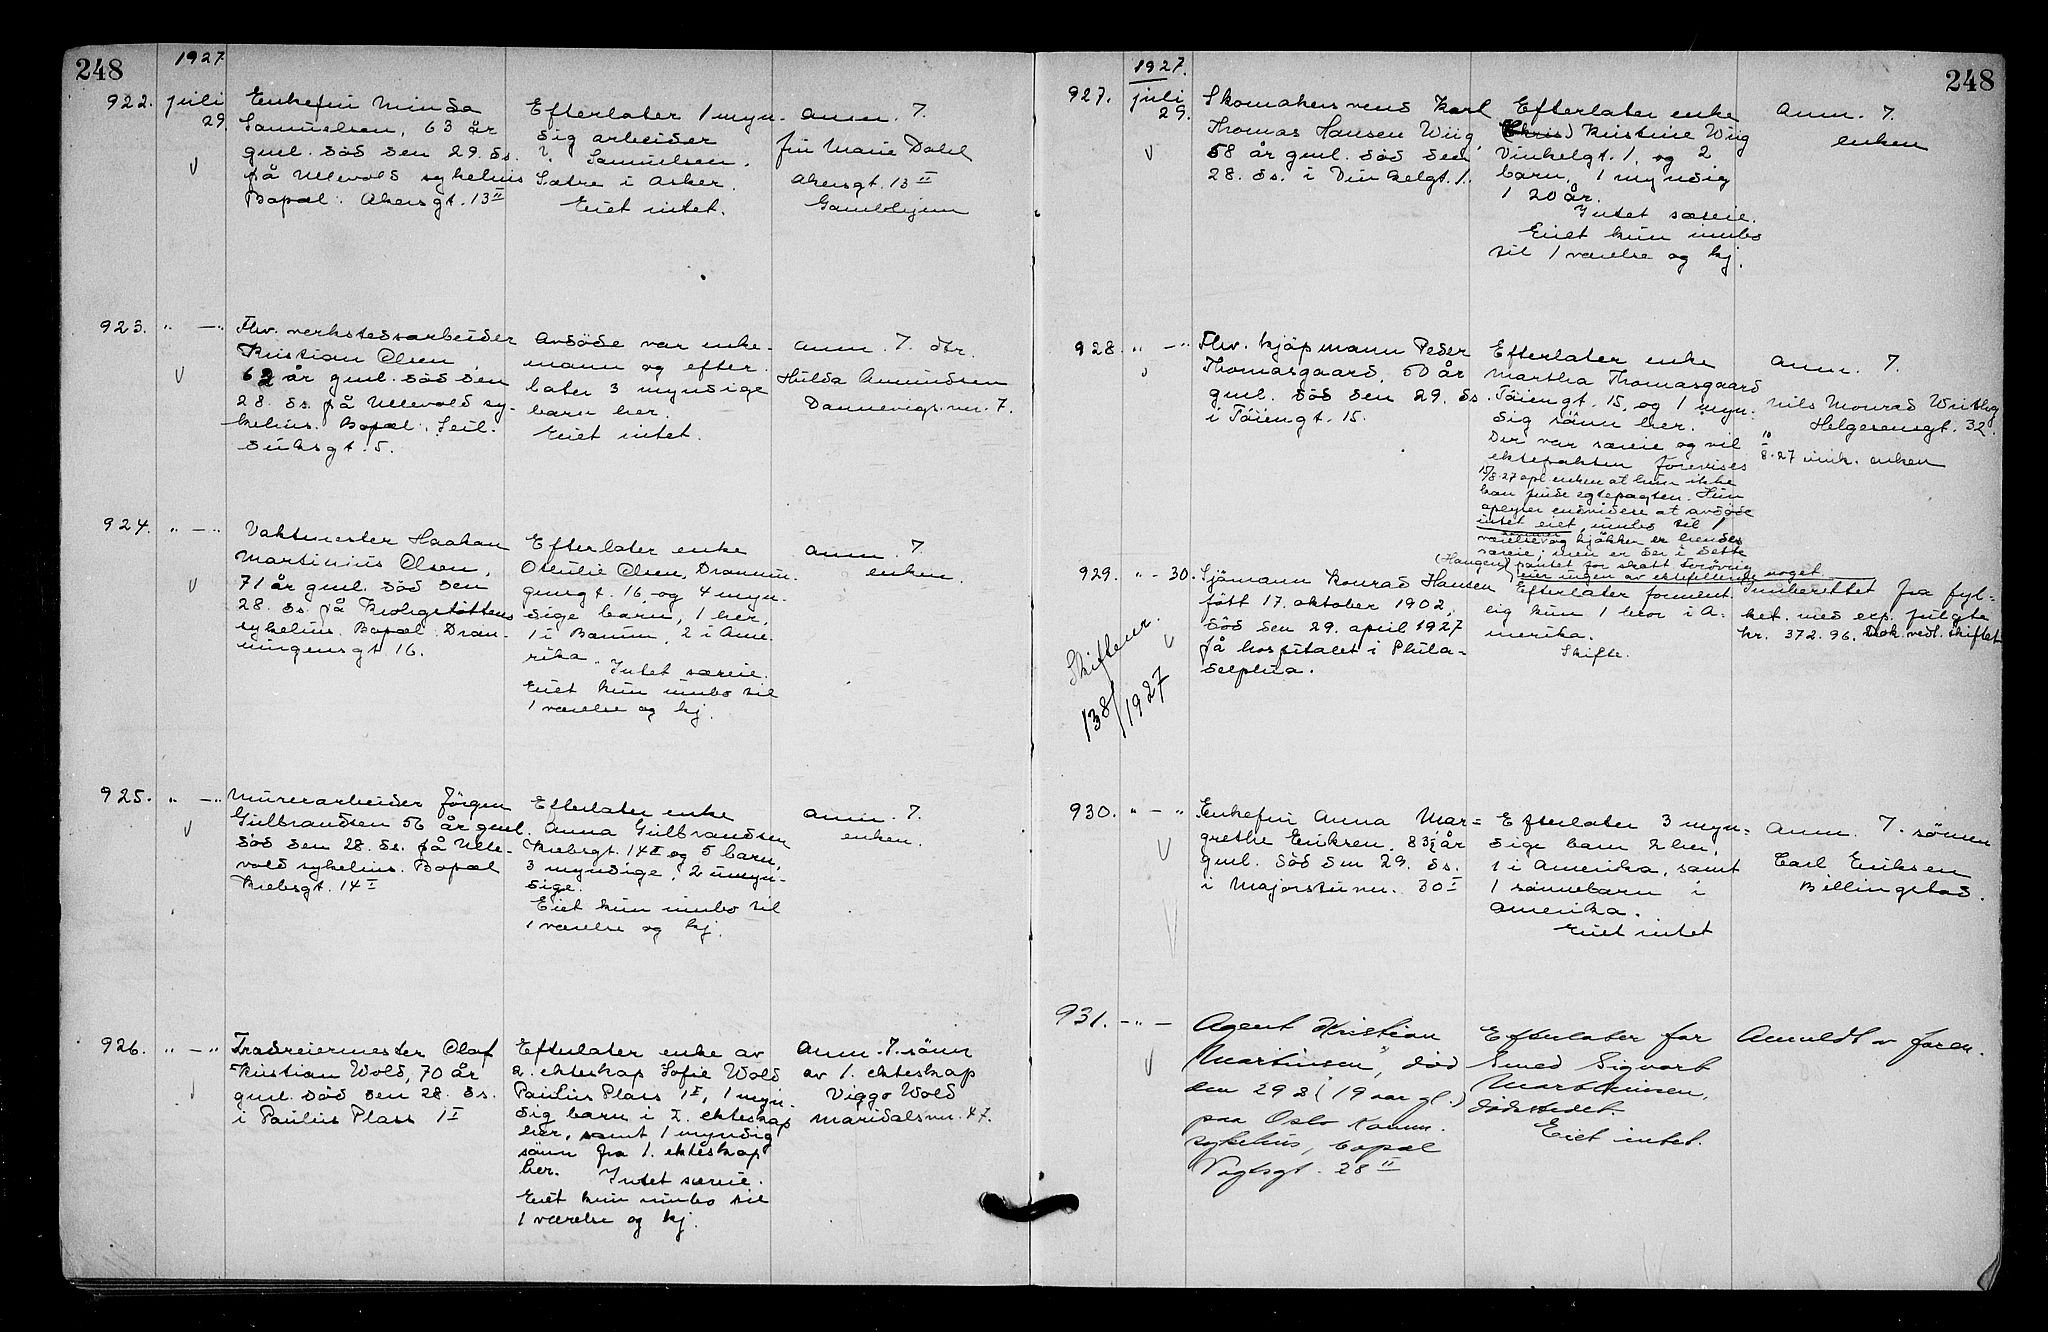 248
1927
922. juli 29.
Enkefru Minda
Samuelsen, 63 år
gml. död den 29. ds.
på Ullevold sykehus
Bopæl: Akersgt. 13 II
Efterlater 1 myn-
dig arbeider
?. Samuelsen.
Sætre i Asker.
Eiet intet.
Anm. 7.
fru Marie Dahl
Akersgt. 13 II
Gamlehjem
923. " — "
Fhv. verkstedsarbeider
Kristian Olsen
62 år gml. död den
28. ds. på Ullevold sy-
kehus. Bopæl: Seil-
duksgt. 5.
Avdöde var enke-
mann og efter-
later 3 myndige
barn her.
Eiet intet.
Anm. 7. dtr.
Hulda Amundsen
Dannevigs vn. 7.
924. " — "
Vaktmester Haakon
Martinius Olsen,
71 år gml. död den
28. ds. på Krohgstöttens
sykehus. Bopæl: Dron-
ningensgt 16.
Efterlater enke
Othilie Olsen, Dronnin-
gensgt. 16 og 4 myn-
dige barn, 1 her,
1 i Bærum, 2 i Ame-
rika. Intet særeie.
Eiet kun innbo til
1 værelse og kj.
Anm. 7.
enken.
925. " — "
Murerarbeider Jörgen
Gulbrandsen 56 år gml.
död den 28. ds. på Ulle-
vold sykehus. Bopæl
Krebsgt. 14 I
Efterlater enke
Anna Gulbrandsen
Krebsgt. 14 I og 5 barn,
3 myndige, 2 umyn-
dige.
Eiet kun innbo til
1 værelse og kj.
Anm. 7.
enken.
926. " — "
Trædreiermester Olaf
Kristian Wold, 70 år
gml. död den 28. ds.
i Paulus Plass 1 I
Efterlater enke av
2. ekteskap Sofie Wold
Paulus Plass 1 I, 1 myn-
dig barn i 2. ekteskap
her, samt 1 myndig
sönn fra 1. ekteskap
her. Intet særeie.
Eiet kun innbo til
1 værelse og kj.
Anm. 7. sönn
av 1. ekteskap
Viggo Wold
Maridalsvn. 47.
248
1927.
927. juli 29.
Skomakersvend Karl
Thomas Hansen Wiig,
58 år gml. död den
28. ds. i Vinkelgt. 1.
Efterlater enke
Kristine Wiig
Vinkelgt. 1, og 2
barn, 1 myndig
1 20 år.
Intet særeie.
Eiet kun innbo
til 1 værelse og kj.
Anm. 7.
enken
928. " — "
Fhv. kjöpmann Peder
Thomasgaard, 50 år
gml. död den 29. ds
i Töiengt. 15.
Efterlater enke
Martha Thomasgaard
Töiengt. 15, og 1 myn-
dig sönn her.
Der var særeie og vil
ektepakten forevises
15/8.27 opl. enken at hun ikke
kan finde egtepagten. Hun
oplyser endvidere at avdöde
intet eiet, innbo til 1
værelse og kjökken er hendes
særeie; men er der i dette
pantet for skatt forövrig
eier ingen av ektefellene noget
Anm. 7.
Nils Monrad
Helgesensgt. 32.
10/8.27 innk. enken
929. " - 30.
Sjömann Konrad Hansen (Haugen)
född 17. oktober 1902,
död den 29. april 1927
på hospitalet i Phila-
delphia.
Efterlater forment-
lig kun 1 bror i A-
merika.
Skifte.
Innberettet fra fyl-
ket. Med erp. fulgte
kr. 372.96. Dok. vedl. skiftet
Skiftenr.
138/1927
930. " — "
Enkefru Anna Mar-
grethe Eriksen, 83½ år
gml. död den 29. ds.
i Majorstuvn. 30 I
Efterlater 3 myn-
dige barn 2 her,
1 i Amerika, samt
1 sönnebarn i
Amerika.
Eiet intet
Anm. 7. sönnen
Carl Eriksen
Billingstad.
931. — " —
Agent Kristian
Martinsen, död
den 29 ds (19 aar gl.)
paa Oslo Komm.
sykehus, bopæl
Vogtsgt. 28 II
Efterlater far
Smed Sigvart
Martinsen,
dödstedet.
Eiet intet.
Anmeldt av faren.